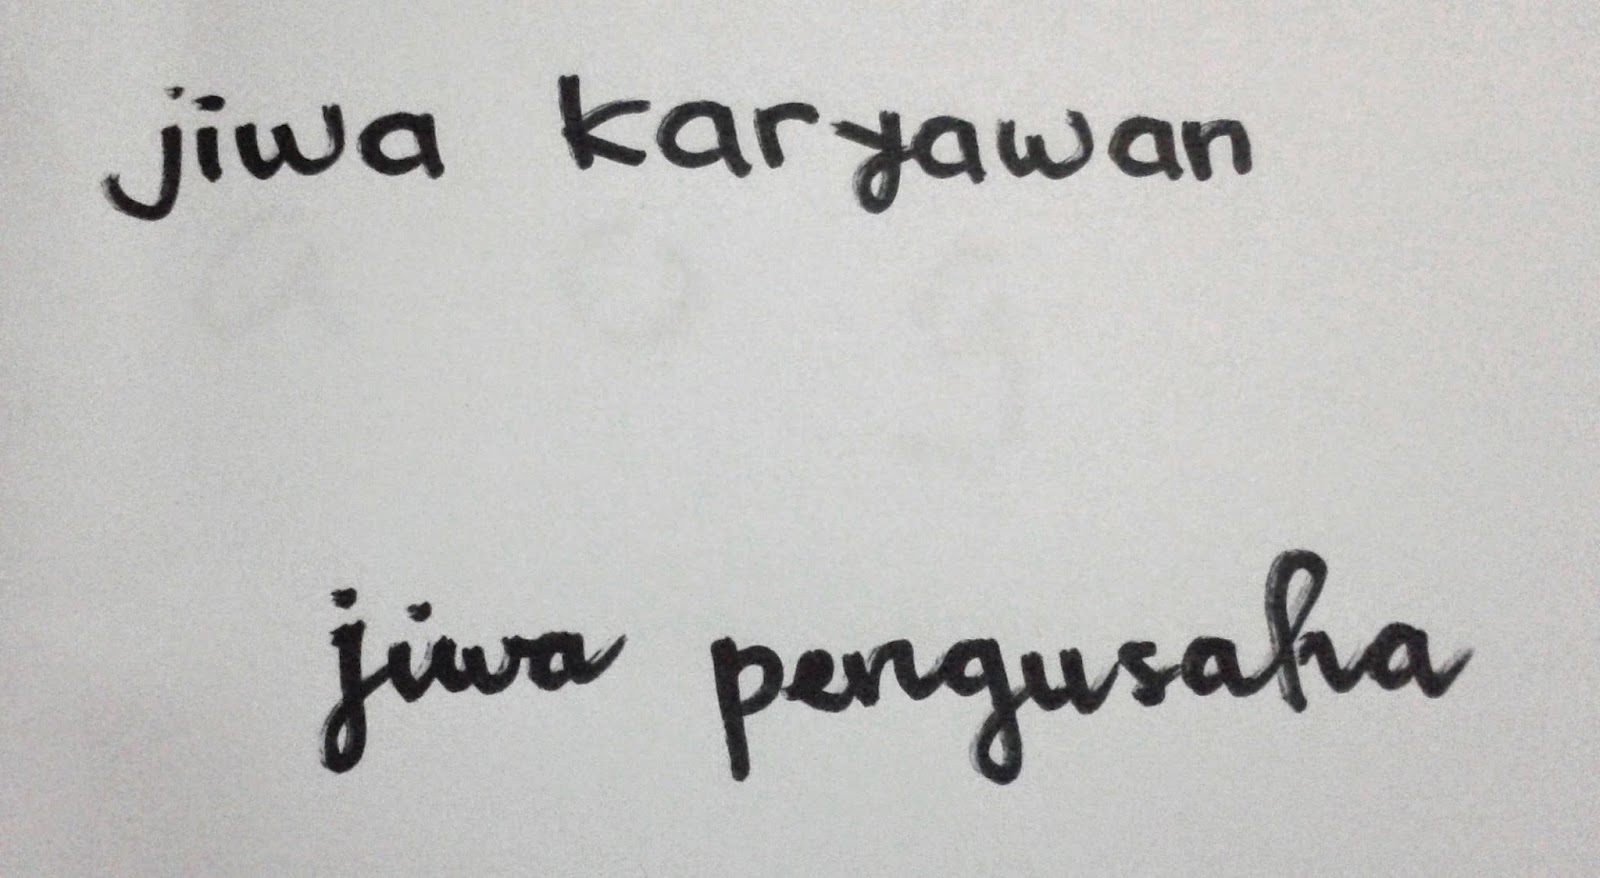 jiwa karyawan
jiwa pengusaha